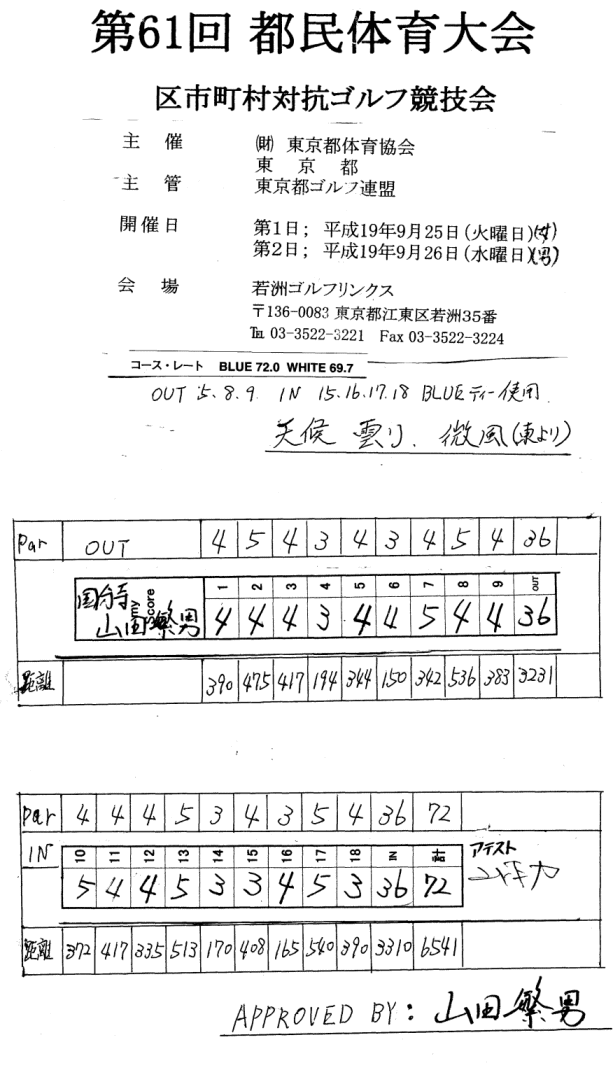 第61回 都民体育大会
区市町村対抗ゴルフ競技会
主 催 ㈶ 東京都体育協会
東 京 都
主 管 東京都ゴルフ連盟
開催日 第1日; 平成19年9月25日(火曜日)(女)
第2日; 平成19年9月26日(水曜日)(男)
会 場 若洲ゴルフリンクス
〒136-0083 東京都江東区若洲35番
℡ 03-3522-3221 Fax 03-3522-3224
コース・レート BLUE 72.0 WHITE 69.7
OUT 5.8.9. IN 15.16.17.18 BLUEティー使用
天候 雲り、微風(東より)
Par OUT 4 5 4 3 4 3 4 5 4 36
1 2 3 4 5 6 7 8 9 OUT
国分寺 山田繁男 my score 4 4 4 3 4 4 5 4 4 36
距離 390 475 417 194 344 150 342 536 383 3231
Par 4 4 4 5 3 4 3 5 4 36 72
IN 10 11 12 13 14 15 16 17 18 IN 計 アテスト
5 4 4 5 3 3 4 5 3 36 72
距離 372 417 335 513 170 408 165 540 390 3310 6541
APPROVED BY: 山田繁男